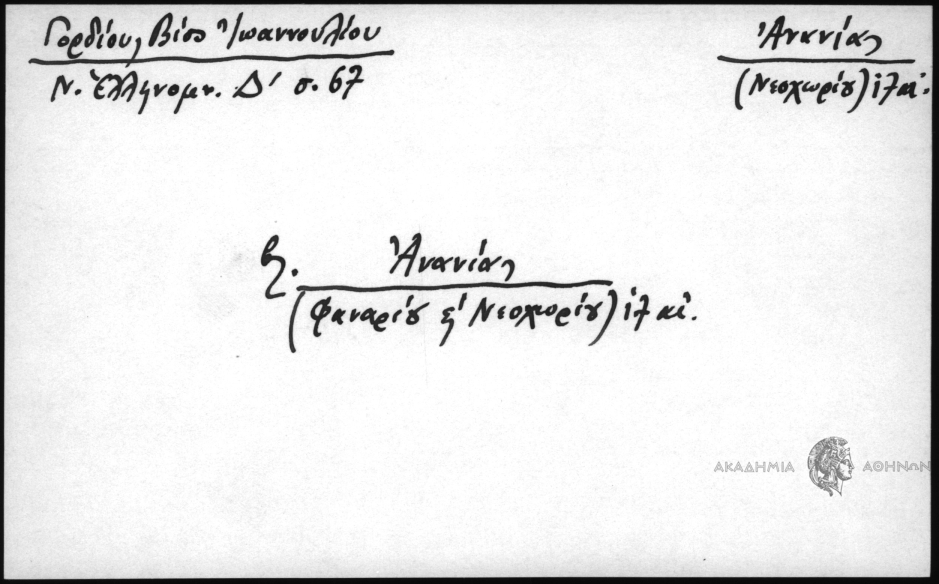 Γορδίου, Βίος Ἰωαννουλίου
Ν. Ἑλληνομν. Δ' σ. 67
Ἀνανίας
(Νεοχωρίου) ιζ αἰ.
βλ. Ἀνανίας
(Φαναρίου ἐ Νεοχωρίου) ιζ αἰ.
ΑΚΑΔΗΜΙΑ ΑΘΗΝΩΝ